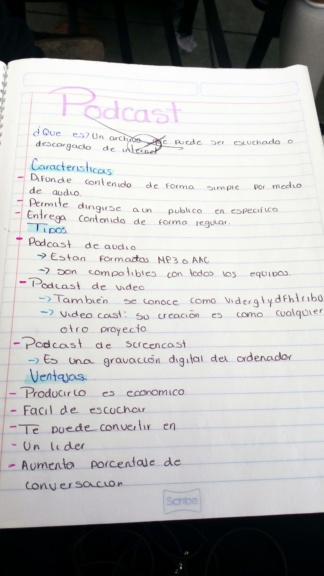 Podcast
¿Que es? Un archivo que puede ser escuchado o
descargado de internet
Características
- Difunde contenido de forma simple por medio
de audio.
- Permite dirigirse a un publico en especifico
- Entrega contenido de forma regular.
Tipos
- Podcast de audio
→ Estan formados MP3 o AAC
→ Son compatibles con todos los equipos.
- Podcast de video
→ También se conoce como
→ Video cast: su creación es como cualquier
otro proyecto
- Podcast de screencast
→ Es una gravacción digital del ordenador
Ventajas
- Producirlo es economico
- Facil de escuchar
- Te puede convertir en
- Un lider
- Aumenta porcentaje de
conversacion
Scribe